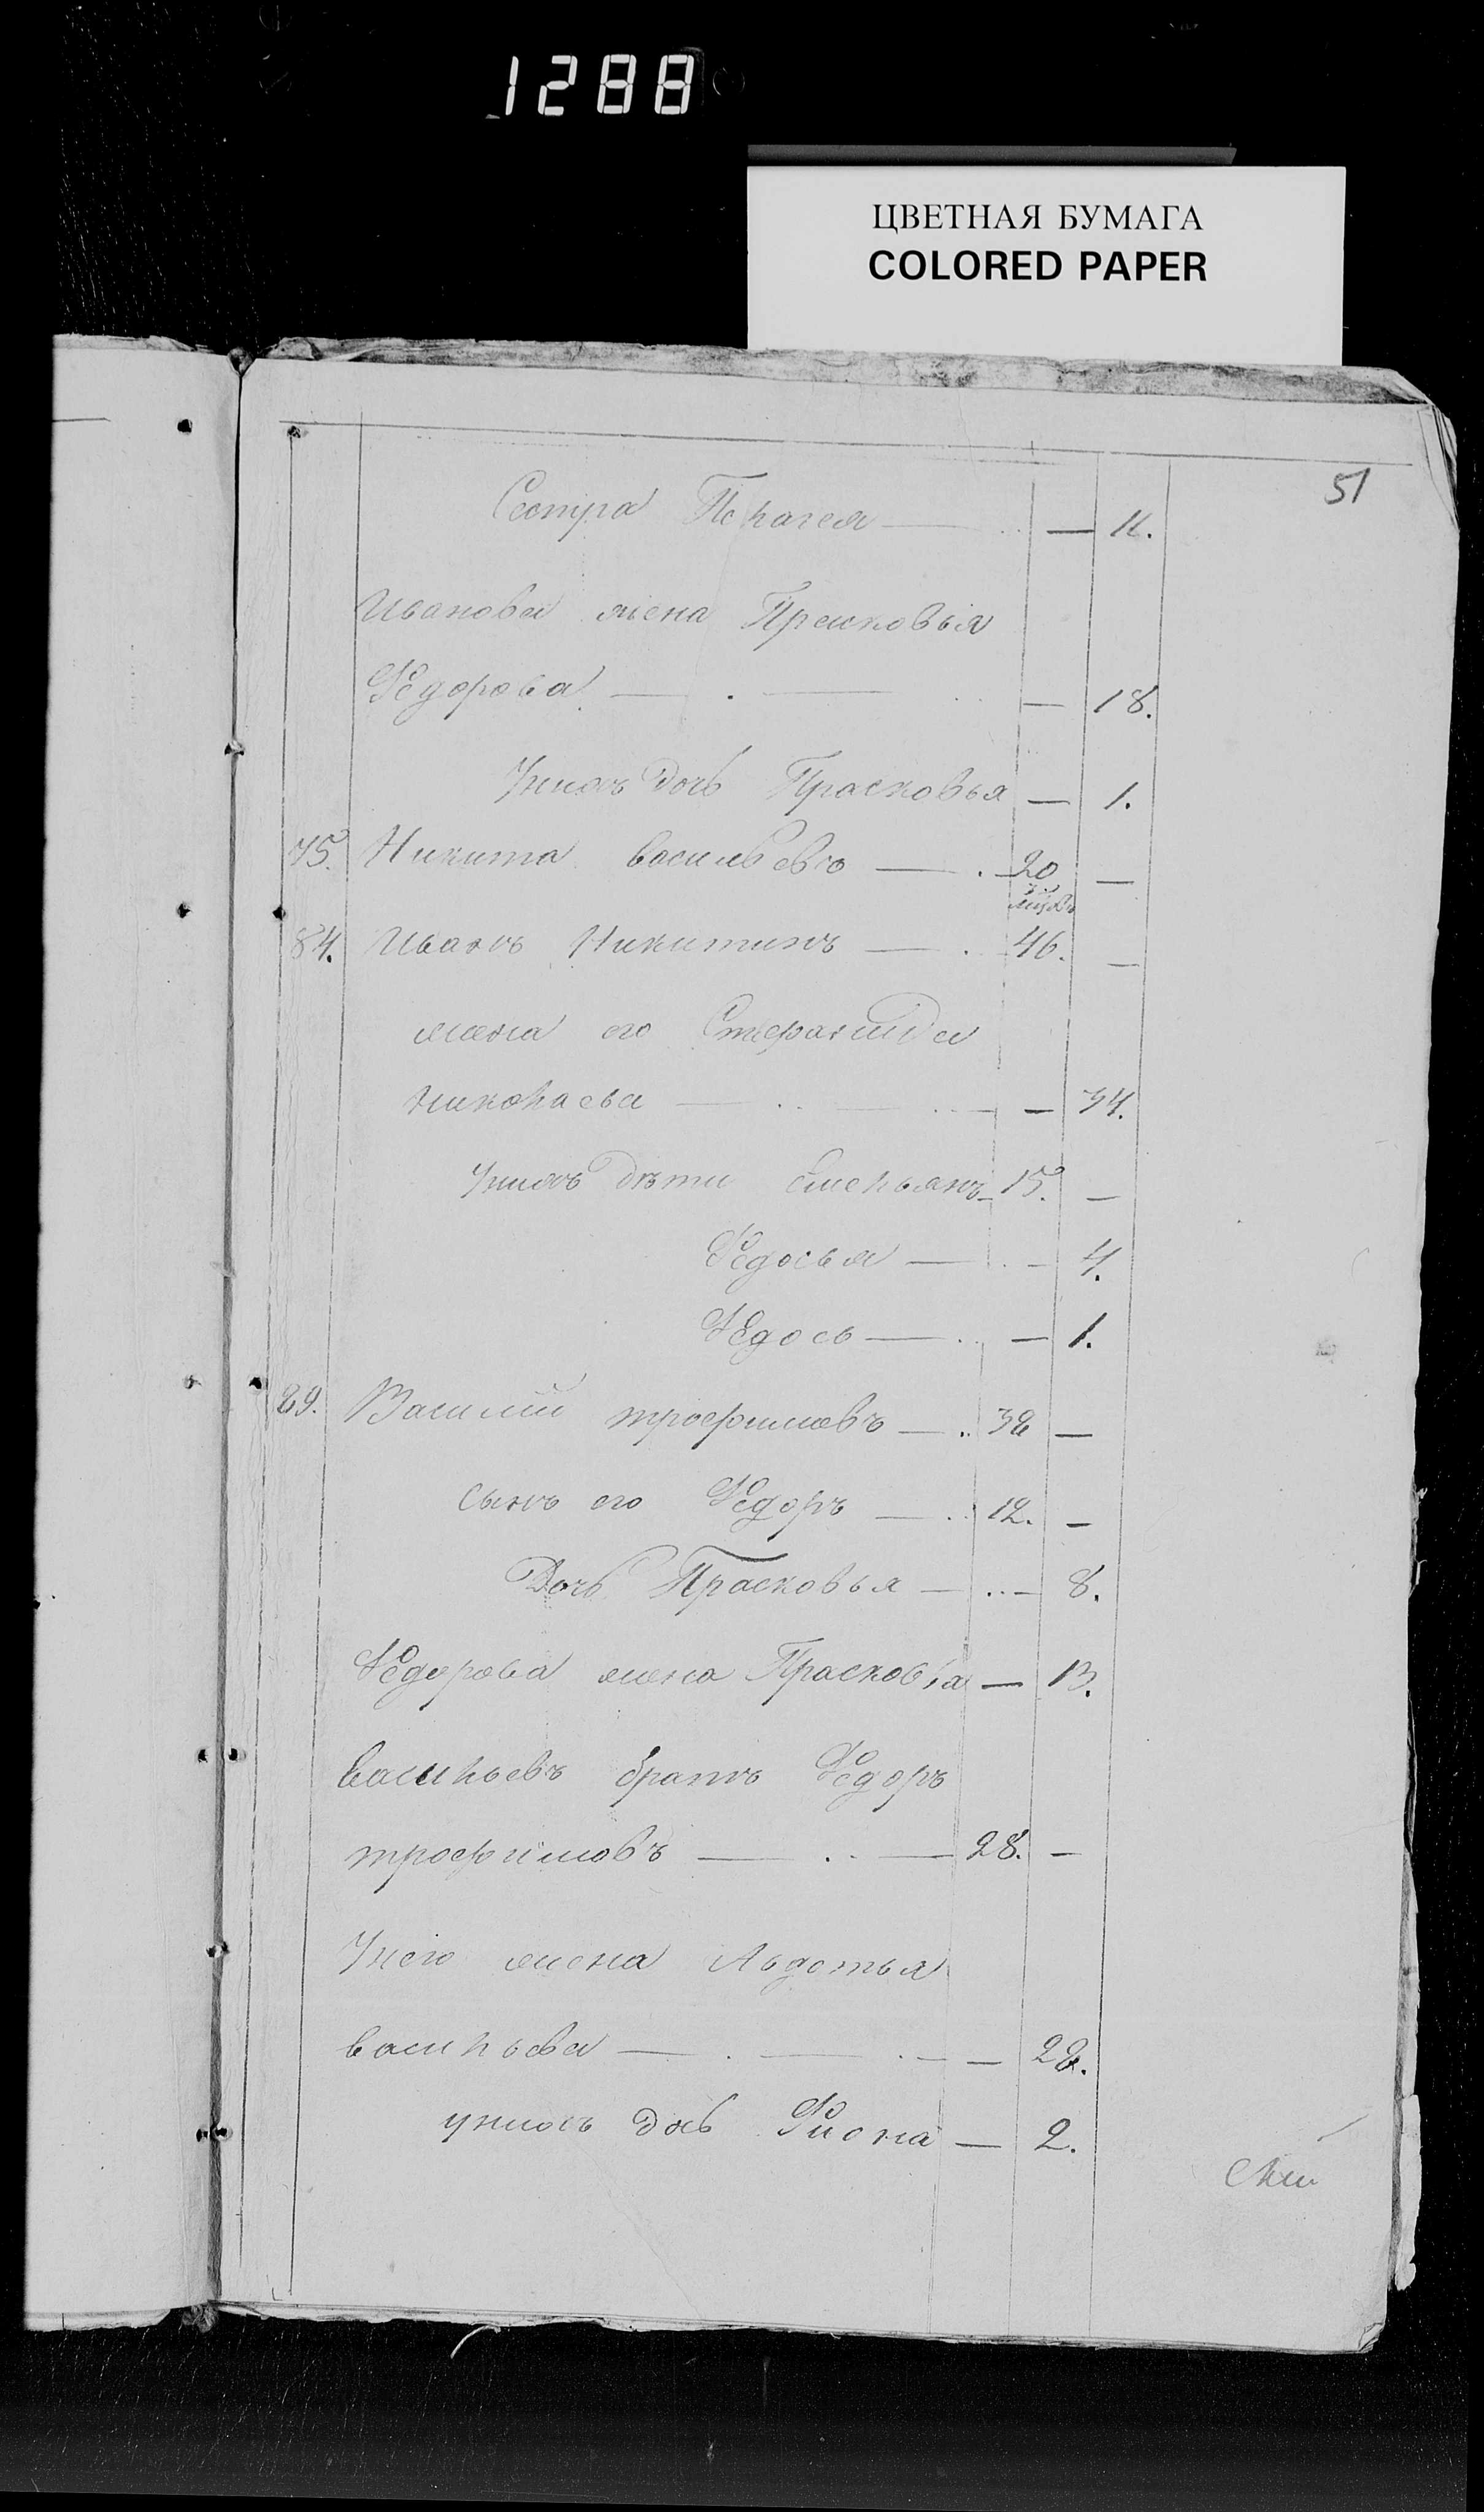 1288
ЦВЕТНАЯ БУМАГА
COLORED PAPER
51
Сестра Пелагея — — 11.
Иванова жена Прасковья
Федорова — . — — 18.
Унихъ дочь Прасковья — 1.
75. Никита васильевъ — . 20 —
84. Иванъ Никитинъ — . 46. —
жена его Степанида
николаева — .. — .. — — 34.
Унихъ дѣти Емельянъ 15. —
Федосья — . — 4.
Федось — .. — 1.
89. Василий трофимовъ — .. 38 —
сынъ его Федоръ — .. 12. —
Дочь Прасковья — .. — 8.
Федорова жена Прасковья — 13.
васильевъ братъ Федоръ
трофимовъ — .. — 28. —
Унего жена Авдотья
васильева — . — . — — 28.
унихъ дочь Фиона — 2.